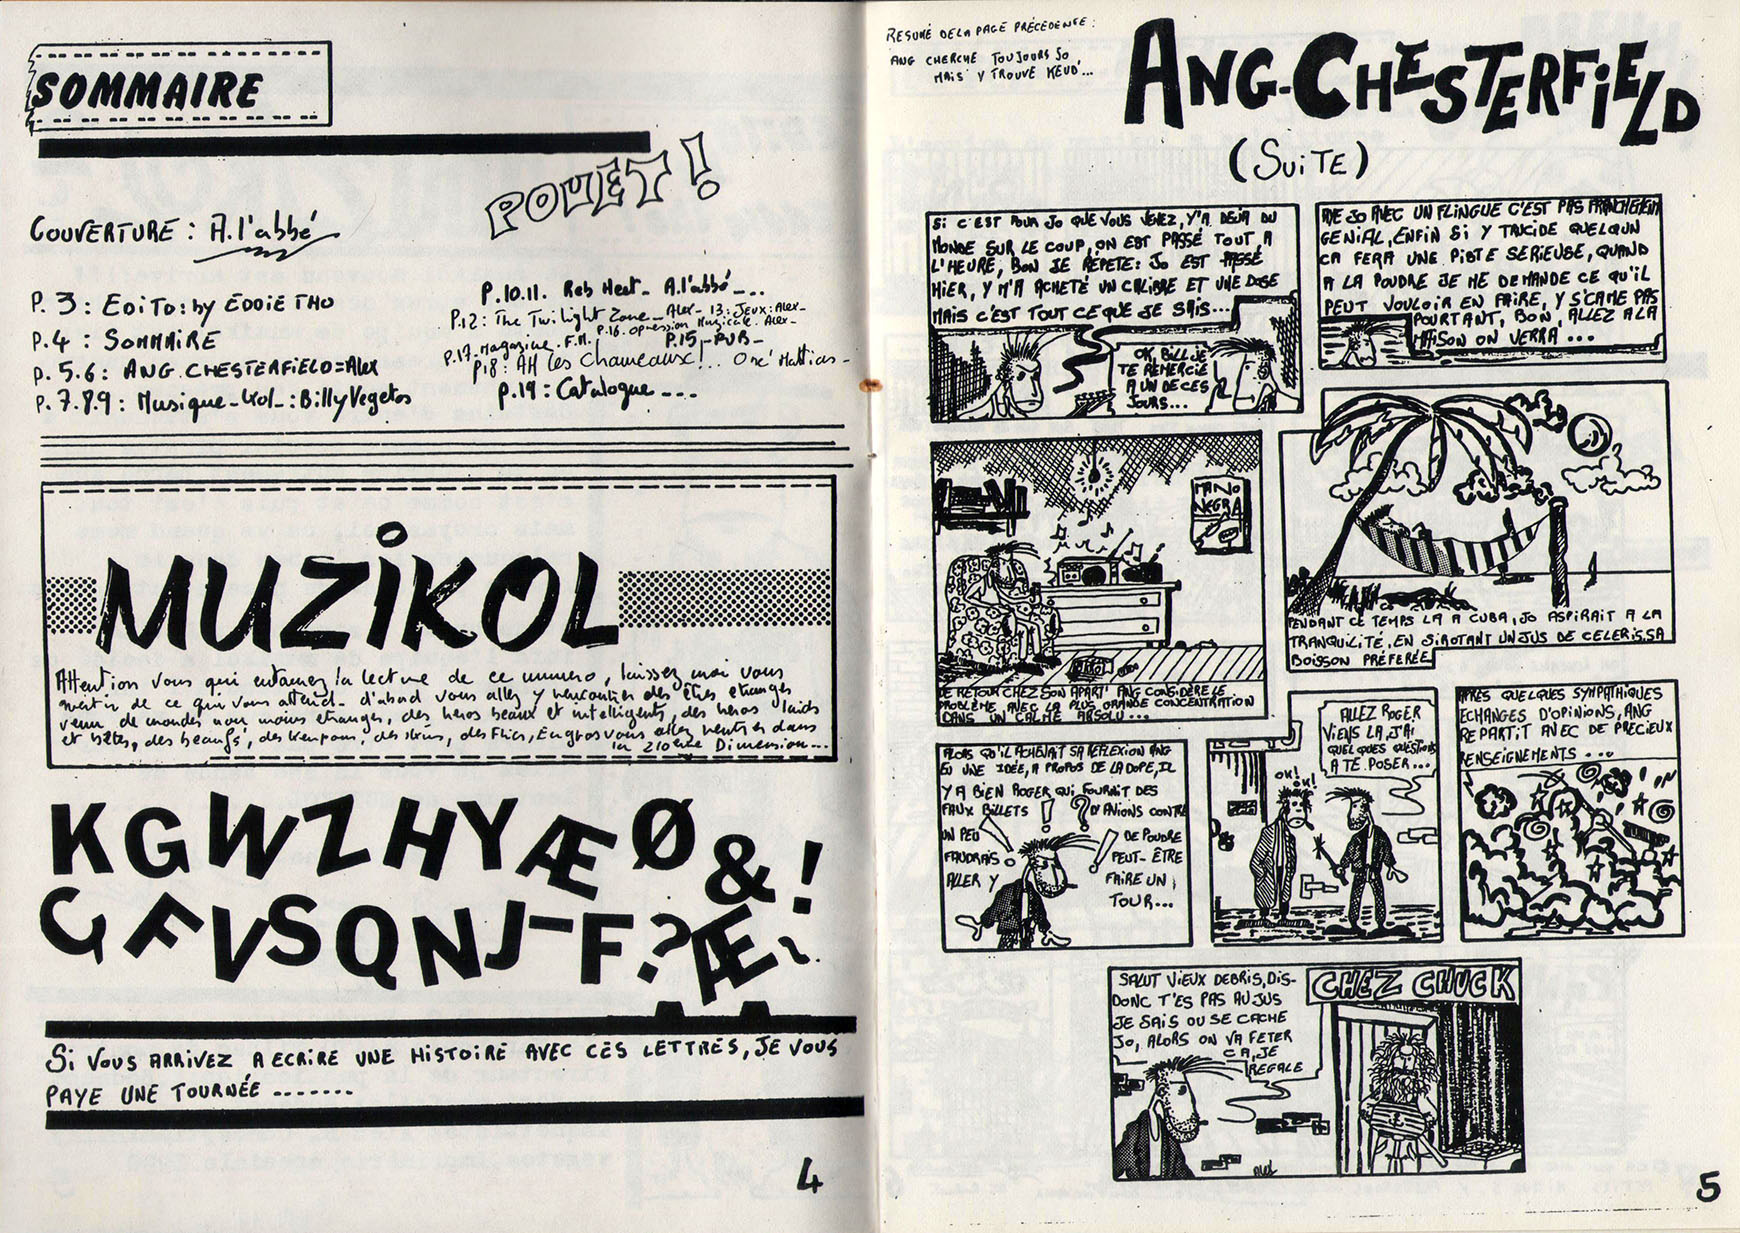 SOMMAIRE
POUET !
COUVERTURE : A.l'abbé
P. 3 : EDITO : by EDDIE THO
P.4 : SOMMAIRE
P. 5.6 : ANG.CHESTERFIELD=Alex
P. 7.8.9 : Musique-Kol_: Billy Vegetos
P.10.11. Rob Heet_ A.l'abbé_...
P.12 : The Twilight Zone_ Alex_ 13: Jeux: Alex_
P.16. opression Musicale. Alex_
P.17. Magazine. F.M. ! P.15_PUB_
P.18 : AH les Chameaux !.. One' Mattias_
P.19 : Catalogue_...
MUZIKOL
Attention vous qui entamez la lecture de ce numero, laissez moi vous
avertir de ce qui vous attend_ d'abord vous allez y rencontrer des êtres etranges
venu de mondes non moins etranges, des heros beaux et intelligents, des heros laids
et bêtes, des beaufs, des keupons, des skins, des Flics, En gros vous allez rentrer dans
la 210eme Dimension...
KGWZHYÆØ&!
GFVSQNJ-F?Æ
SI VOUS ARRIVEZ A ECRIRE UNE HISTOIRE AVEC CES LETTRES, JE VOUS
PAYE UNE TOURNÉE .......
4
RESUMÉ DE LA PAGE PRÉCEDENTE :
ANG CHERCHE TOUJOURS JO,
MAIS Y TROUVE KEUD...
ANG-CHESTERFIELD
(SUITE)
SI C'EST POUR JO QUE VOUS VENEZ, Y'A DEJA DU
MONDE SUR LE COUP, ON EST PASSÉ TOUT A
L'HEURE, BON JE RÉPETE : JO EST PASSÉ
HIER, Y M'A ACHETÉ UN CALIBRE ET UNE DOSE
MAIS C'EST TOUT CE QUE JE SAIS...
OK, BILL JE
TE REMERCIE
A UN DE CES
JOURS...
JO AVEC UN FLINGUE C'EST PAS FRANCHEMENT
GENIAL, ENFIN SI Y TRUCIDE QUELQUN
CA FERA UNE PISTE SERIEUSE, QUAND
A LA POUDRE JE ME DEMANDE CE QU'IL
PEUT VOULOIR EN FAIRE, Y S'CAME PAS
POURTANT, BON, ALLEZ A LA
MAISON ON VERRA ...
MANO
NEGRA
DE RETOUR CHEZ SON APART' ANG CONSIDÈRE LE
PROBLÈME AVEC LA PLUS GRANDE CONCENTRATION
DANS UN CALME ABSOLU...
PENDANT CE TEMPS LA A CUBA, JO ASPIRAIT A LA
TRANQUILITÉ, EN SIROTANT UN JUS DE CELERIS, SA
BOISSON PRÉFERÉE
ALORS QU'IL ACHEVAIT SA REFLEXION ANG
EU UNE IDÉE, A PROPOS DE LA DOPE, IL
Y A BIEN ROGER QUI FOURNIT DES
FAUX BILLETS ! ? D'ANIONS CONTRE
UN PEU ! DE POUDRE
FAUDRAIS ! PEUT-ÊTRE
ALLER Y FAIRE UN
TOUR...
ALLEZ ROGER
VIENS LA, J'AI
QUELQUES QUESTIONS
A TE POSER...
OK!
OK!
APRÈS QUELQUES SYMPATHIQUES
ECHANGES D'OPINIONS, ANG
REPARTIT AVEC DE PRÉCIEUX
RENSEIGNEMENTS ...
SALUT VIEUX DEBRIS, DIS-
DONC T'ES PAS AU JUS
JE SAIS OU SE CACHE
JO, ALORS ON VA FETER
CA, JE
REGALE
CHEZ CHUCK
Alex
5